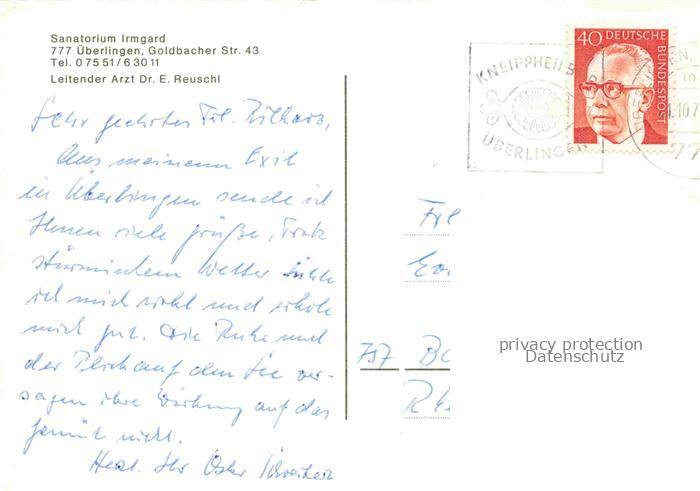 Sanatorium Irmgard
777 Überlingen, Goldbacher Str. 43
Tel. 0 75 51 / 6 30 11
Leitender Arzt Dr. E. Reuschl
Sehr geehrtes Frl.
Aus meinem Exil
in Überlingen sende ich
Ihnen viele Grüße, Trotz
stürmischem Wetter fühle
ich mich wohl und erhole
mich gut. Die Ruhe und
der Blick auf den See ver-
sagen ihre Wirkung auf das
Gemüt nicht.
Herzl. Ihr Oskar
40 DEUTSCHE
BUNDESPOST
KNEIPPHEILB
ÜBERLINGEN
10.7
77
Frl
757 Ba
privacy protection
Datenschutz